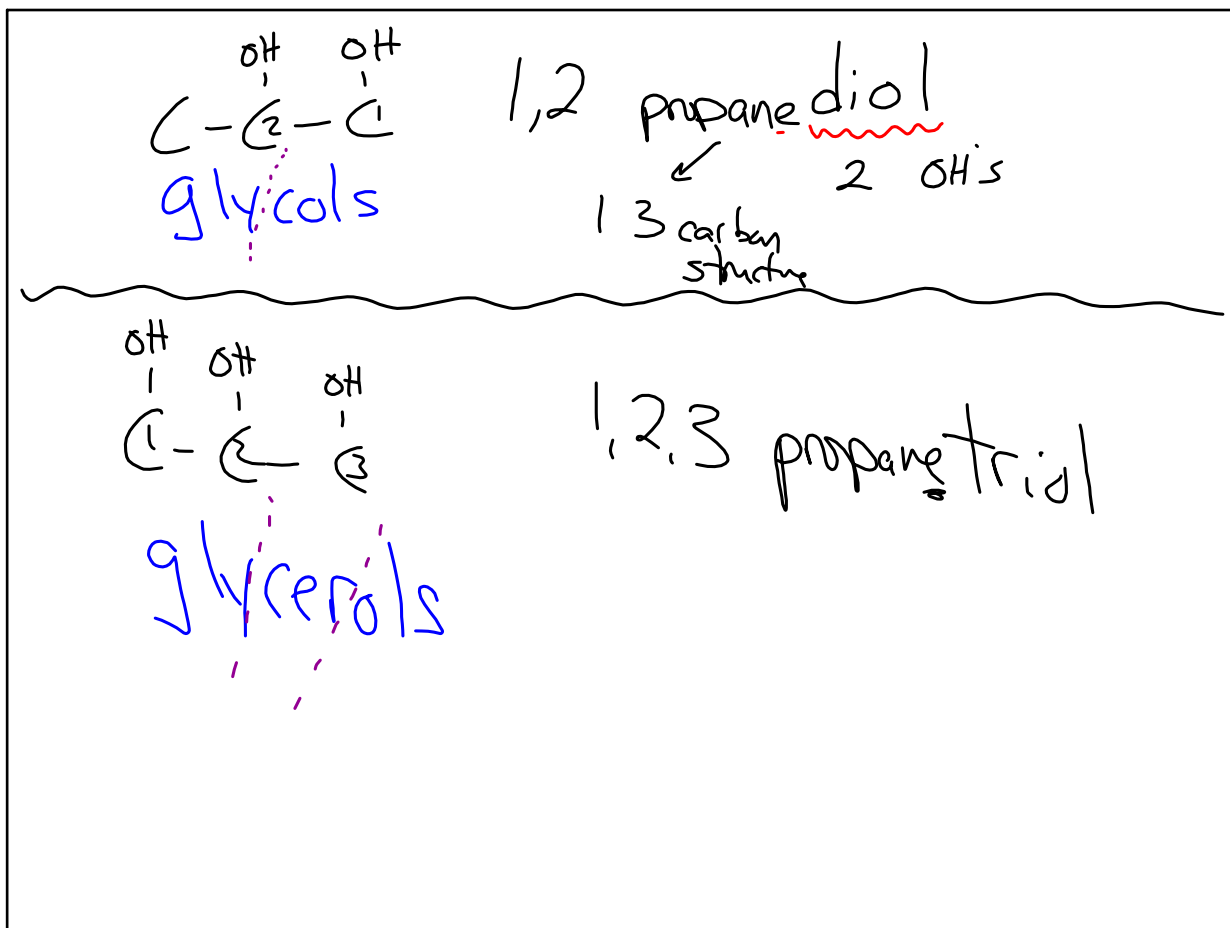 OH OH
C - C2 - C1
1,2 propanediol
2 OH's
glycols
1 3 carbon
structure
OH OH OH
C1 - C2 - C3
1,2,3 propanetriol
glycerols